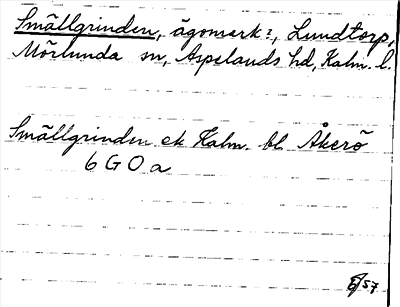 Smällgrinden, ägomark?, Lundtorp,
Mörlunda sn, Aspelands hd, Kalm. l.
Smällgrinden ek Kalm. bl. Åkerö
6 G 0 a
57